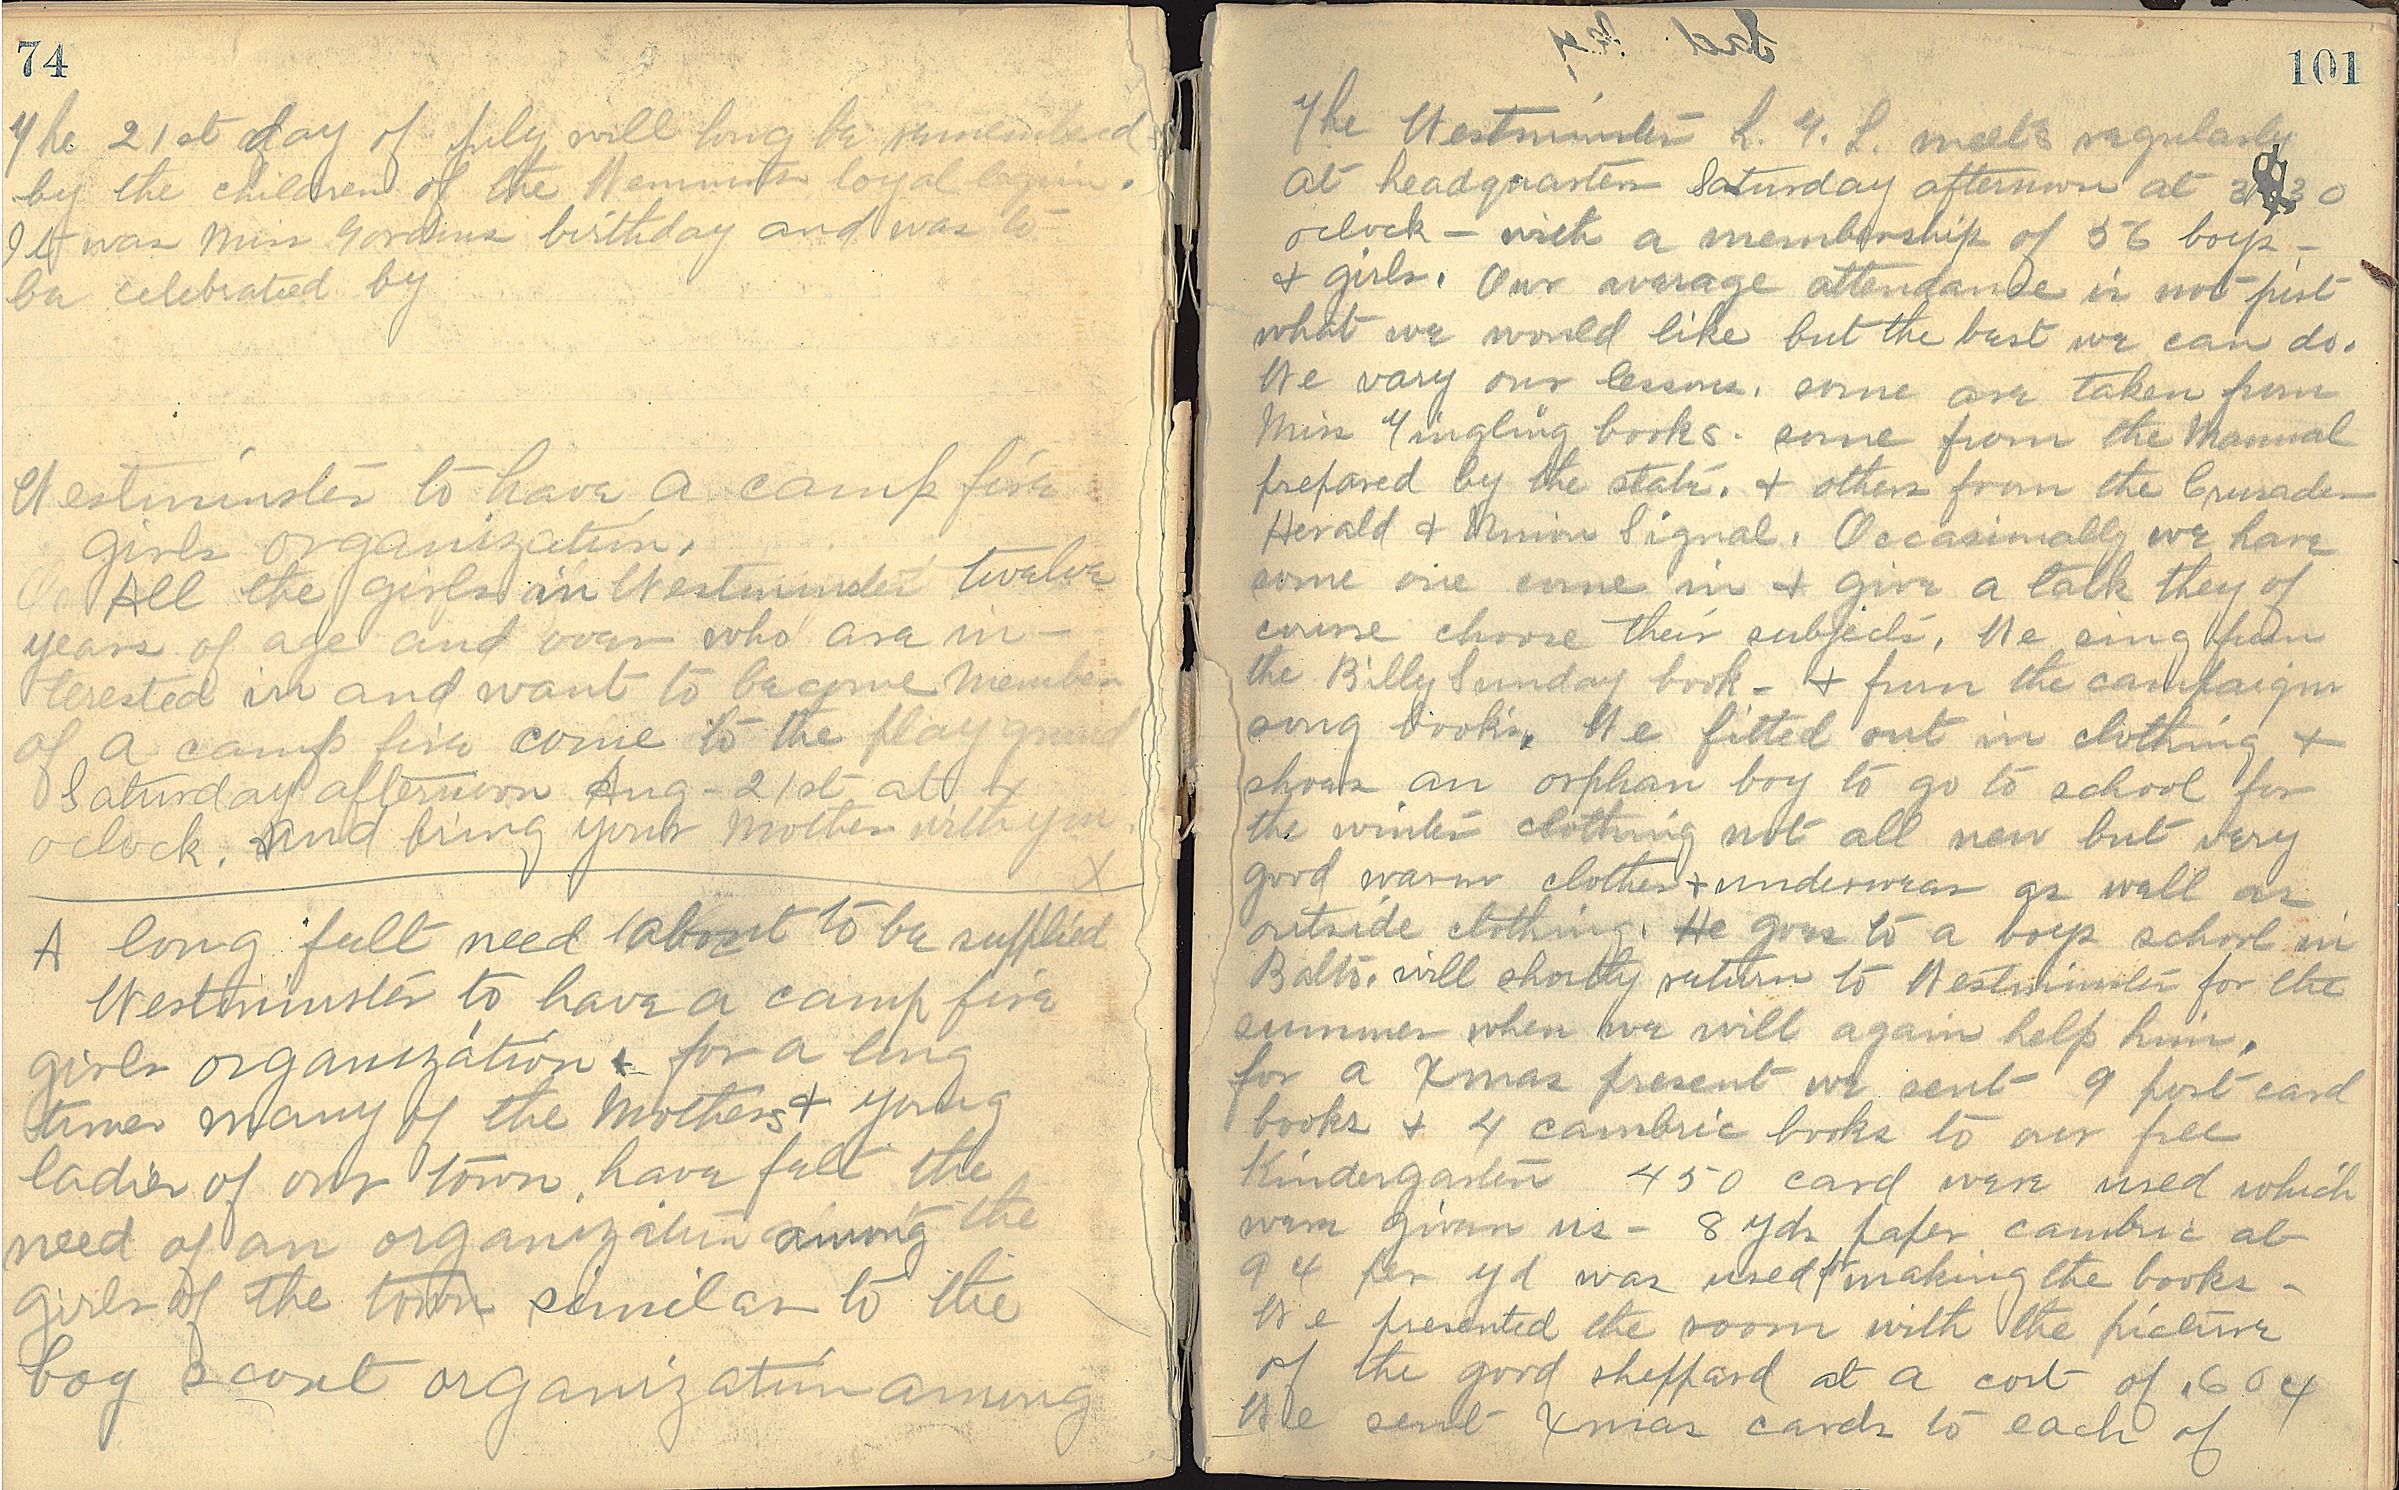 74
The 21st day of July will long be remembered
by the children of the Wesminster loyal legion.
It was Miss Gordons birthday and was to
be celebrated by
Westminster to have a camp fire
girls organization.
All the girls in Westminster twelve
years of age and over who are in-
terested in and want to become Member
of a camp fire come to the play ground
Saturday afternoon Aug-21st at 4
oclock. and bring your Mother with you.
X
A long felt need about to be supplied
Westminster to have a camp fire
girls organization. for a long
time many of the Mothers & young
ladies of our town, have felt the
need of an organization among the
girls of the town similar to the
boy scout organization among
101
The Westminster L. T. L. meets regularly
at headquarters Saturday afternoon at 30
oclock - with a membership of 56 boys -
& girls. Our average attendance is not just
what we would like but the best we can do.
We vary our lessons. some are taken from
Miss Yingling books. some from the Manual
prepared by the state. & others from the Crusader
Herald & Union Signal. Occasionally we have
some one come in & give a talk they of
course choose their subjects. We sing from
the Billy Sunday book - & from the campaign
song books. We fitted out in clothing &
shoes an orphan boy to go to school for
the winter clothing not all new but very
good warm clothes & underwear as well as
outside clothing. He goes to a boys school in
Balto. will shortly return to Westminster for the
summer when we will again help him.
for a Xmas present we sent 9 post card
books & 4 cambric books to our free
Kindergarten 450 card were used which
were given us - 8 yds paper cambric at
9 ¢ per yd was used for making the books -
We presented the room with the picture
of the good sheppard at a cost of .60 ¢
We sent Xmas cards to each of